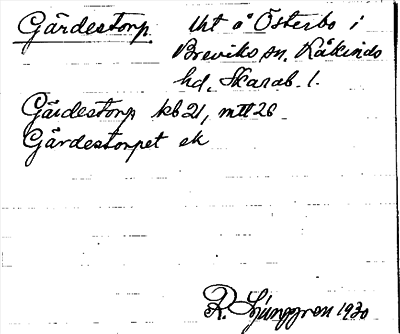 Gärdestorp. Urt å Österbo i
Breviks sn. Kåkinds
hd, Skarab. l.
Gärdestorp kb 21, mtl 26
Gärdestorpet ek
R. Ljunggren 1930